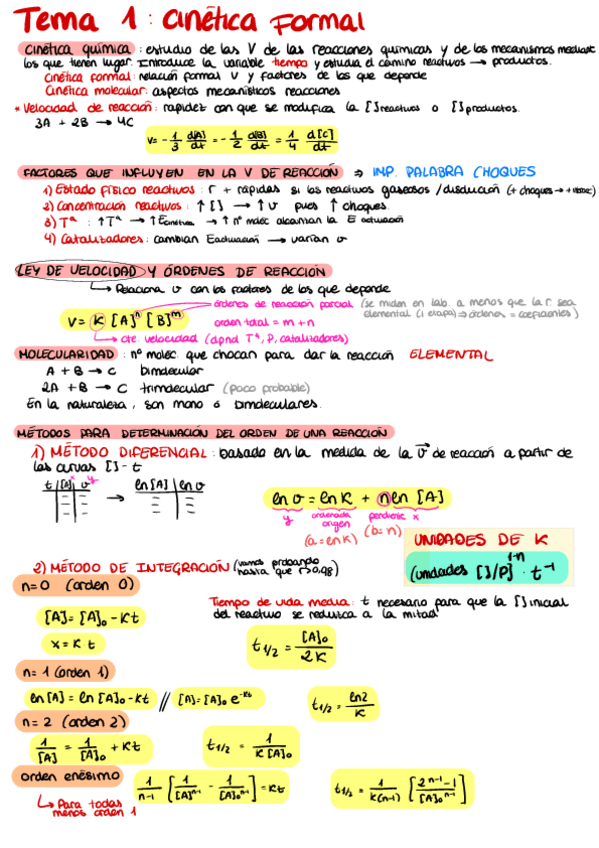 Tema 1: cinética Formal
cinética química: estudio de las V de las reacciones químicas y de los mecanismos mediante
los que tienen lugar. Introduce la variable tiempo y estudia el camino reactivos → productos.
cinética formal: relación formal V y factores de los que depende
cinética molecular: aspectos mecanísticos reacciones
* Velocidad de reacción: rapidez con que se modifica la [ ]reactivos o [ ]productos.
3A + 2B → 4C
V= - 1/3 d[A]/dt = - 1/2 d[B]/dt = 1/4 d[C]/dt
FACTORES QUE INFLUYEN EN LA V DE REACCIÓN ⇒ IMP. PALABRA CHOQUES
1) Estado físico reactivos: r + rápidas si los reactivos gaseosos / disolución (+ choques → + veloc)
2) Concentración reactivos: ↑ [ ] → ↑ v pues ↑ choques.
3) Tª : ↑Tª → ↑Ecinética → ↑ nº molec alcanzan la E activación
4) Catalizadores: cambian Eactivación → varían v
LEY DE VELOCIDAD Y ÓRDENES DE REACCIÓN
↳ Relaciona v con los factores de los que depende
órdenes de reacción parcial (se miden en lab. a menos que la r. sea
elemental (1 etapa) ⇒ órdenes = coeficientes)
V = K [A]^n [B]^m
orden total = m + n
cte. velocidad (dpnd Tª, P, catalizadores)
MOLECULARIDAD : nº molec. que chocan para dar la reacción ELEMENTAL
A + B → C bimolecular
2A + B → C trimolecular (poco probable)
En la naturaleza, son mono o bimoleculares.
MÉTODOS PARA DETERMINACIÓN DEL ORDEN DE UNA REACCIÓN
1) MÉTODO DIFERENCIAL: basado en la medida de la v⃗ de reacción a partir de
las curvas [ ] - t
x y
t | [A] | v → ln [A] | ln v
ln v = ln K + n ln [A]
y ordenada origen pendiente x
(a = ln K) (b = n)
UNIDADES DE K
(unidades [ ]/P)^1-n · t^-1
2) MÉTODO DE INTEGRACIÓN (vamos probando
hasta que r>0,98)
n = 0 (orden 0)
Tiempo de vida media: t necesario para que la [ ] inicial
del reactivo se reduzca a la mitad
[A] = [A]₀ - Kt
x = K t
t1/2 = [A]₀ / 2K
n = 1 (orden 1)
ln [A] = ln [A]₀ - Kt // [A] = [A]₀ e^-Kt
t1/2 = ln2 / K
n = 2 (orden 2)
1/[A] = 1/[A]₀ + Kt
t1/2 = 1 / K [A]₀
orden enésimo
1/n-1 [ 1/[A]^n-1 - 1/[A]₀^n-1 ] = Kt
t1/2 = 1/K(n-1) [ 2^n-1 - 1 / [A]₀^n-1 ]
↳ Para todas
menos orden 1